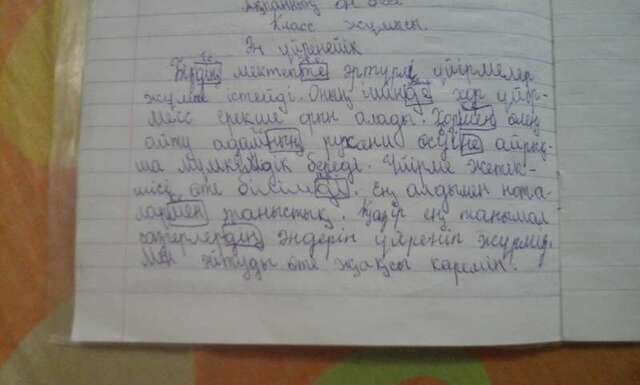 Класс жұмысы.
Ән үйренейік
Біздің мектепте әртүрлі үйірмелер
жұмыс істейді. Оның ішінде хор үйір-
месі ерекше орын алады. Хормен өлең
айту адамның рухани өсуіне айрық-
ша мүмкіндік береді. Үйірме жетек-
шісі өте білімді. Ең алдымен нота-
лармен таныстық. Қазір ең танымал
сазгерлердің әндерін үйреніп жүрміз.
Мен ән айтуды өте жақсы көремін.